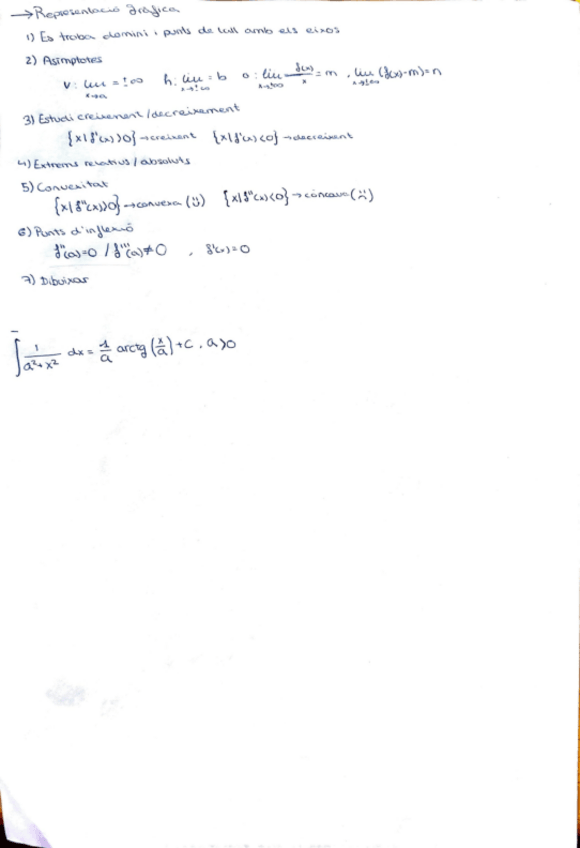 → Representació gràfica
1) Es troba domini i punts de tall amb els eixos
2) Asímptotes
v: lim x→a = ±∞ h: lim x→±∞ = b o: lim x→±∞ f(x)/x = m , lim x→±∞ (f(x)-m)=n
3) Estudi creixement/decreixement
{x|f'(x)>0}→creixent {x|f'(x)<0}→decreixent
4) Extrems relatius/absoluts
5) Convexitat
{x|f''(x)>0}→convexa (:)) {x|f''(x)<0}→còncava (:()
6) Punts d'inflexió
f''(a)=0 / f'''(a)≠0 , f'(x)=0
7) Dibuixar
∫ 1/(a²+x²) dx = 1/a arctg (x/a) + C , a>0